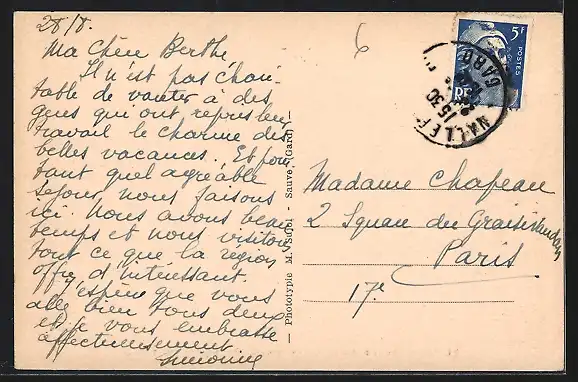 28/8.
Ma Chère Berthe
Il n'est pas chari-
table de vanter à des
gens qui ont repris leur
travail le charme des
belles vacances. Et pour
tant quel agréable
séjour nous faisons
ici. Nous avons beau
temps et nous visitons
tout ce que la région
offre d'intéressant.
J'espère que vous
alle bien tous deux
et je vous embrasse
affectueusement
6
— Phototypie M. Sujol - Sauve (Gard) —
5F
POSTES
RF
15 30
GARD
Madame Chapeau
2 Square du Graisivaudan
Paris
17e